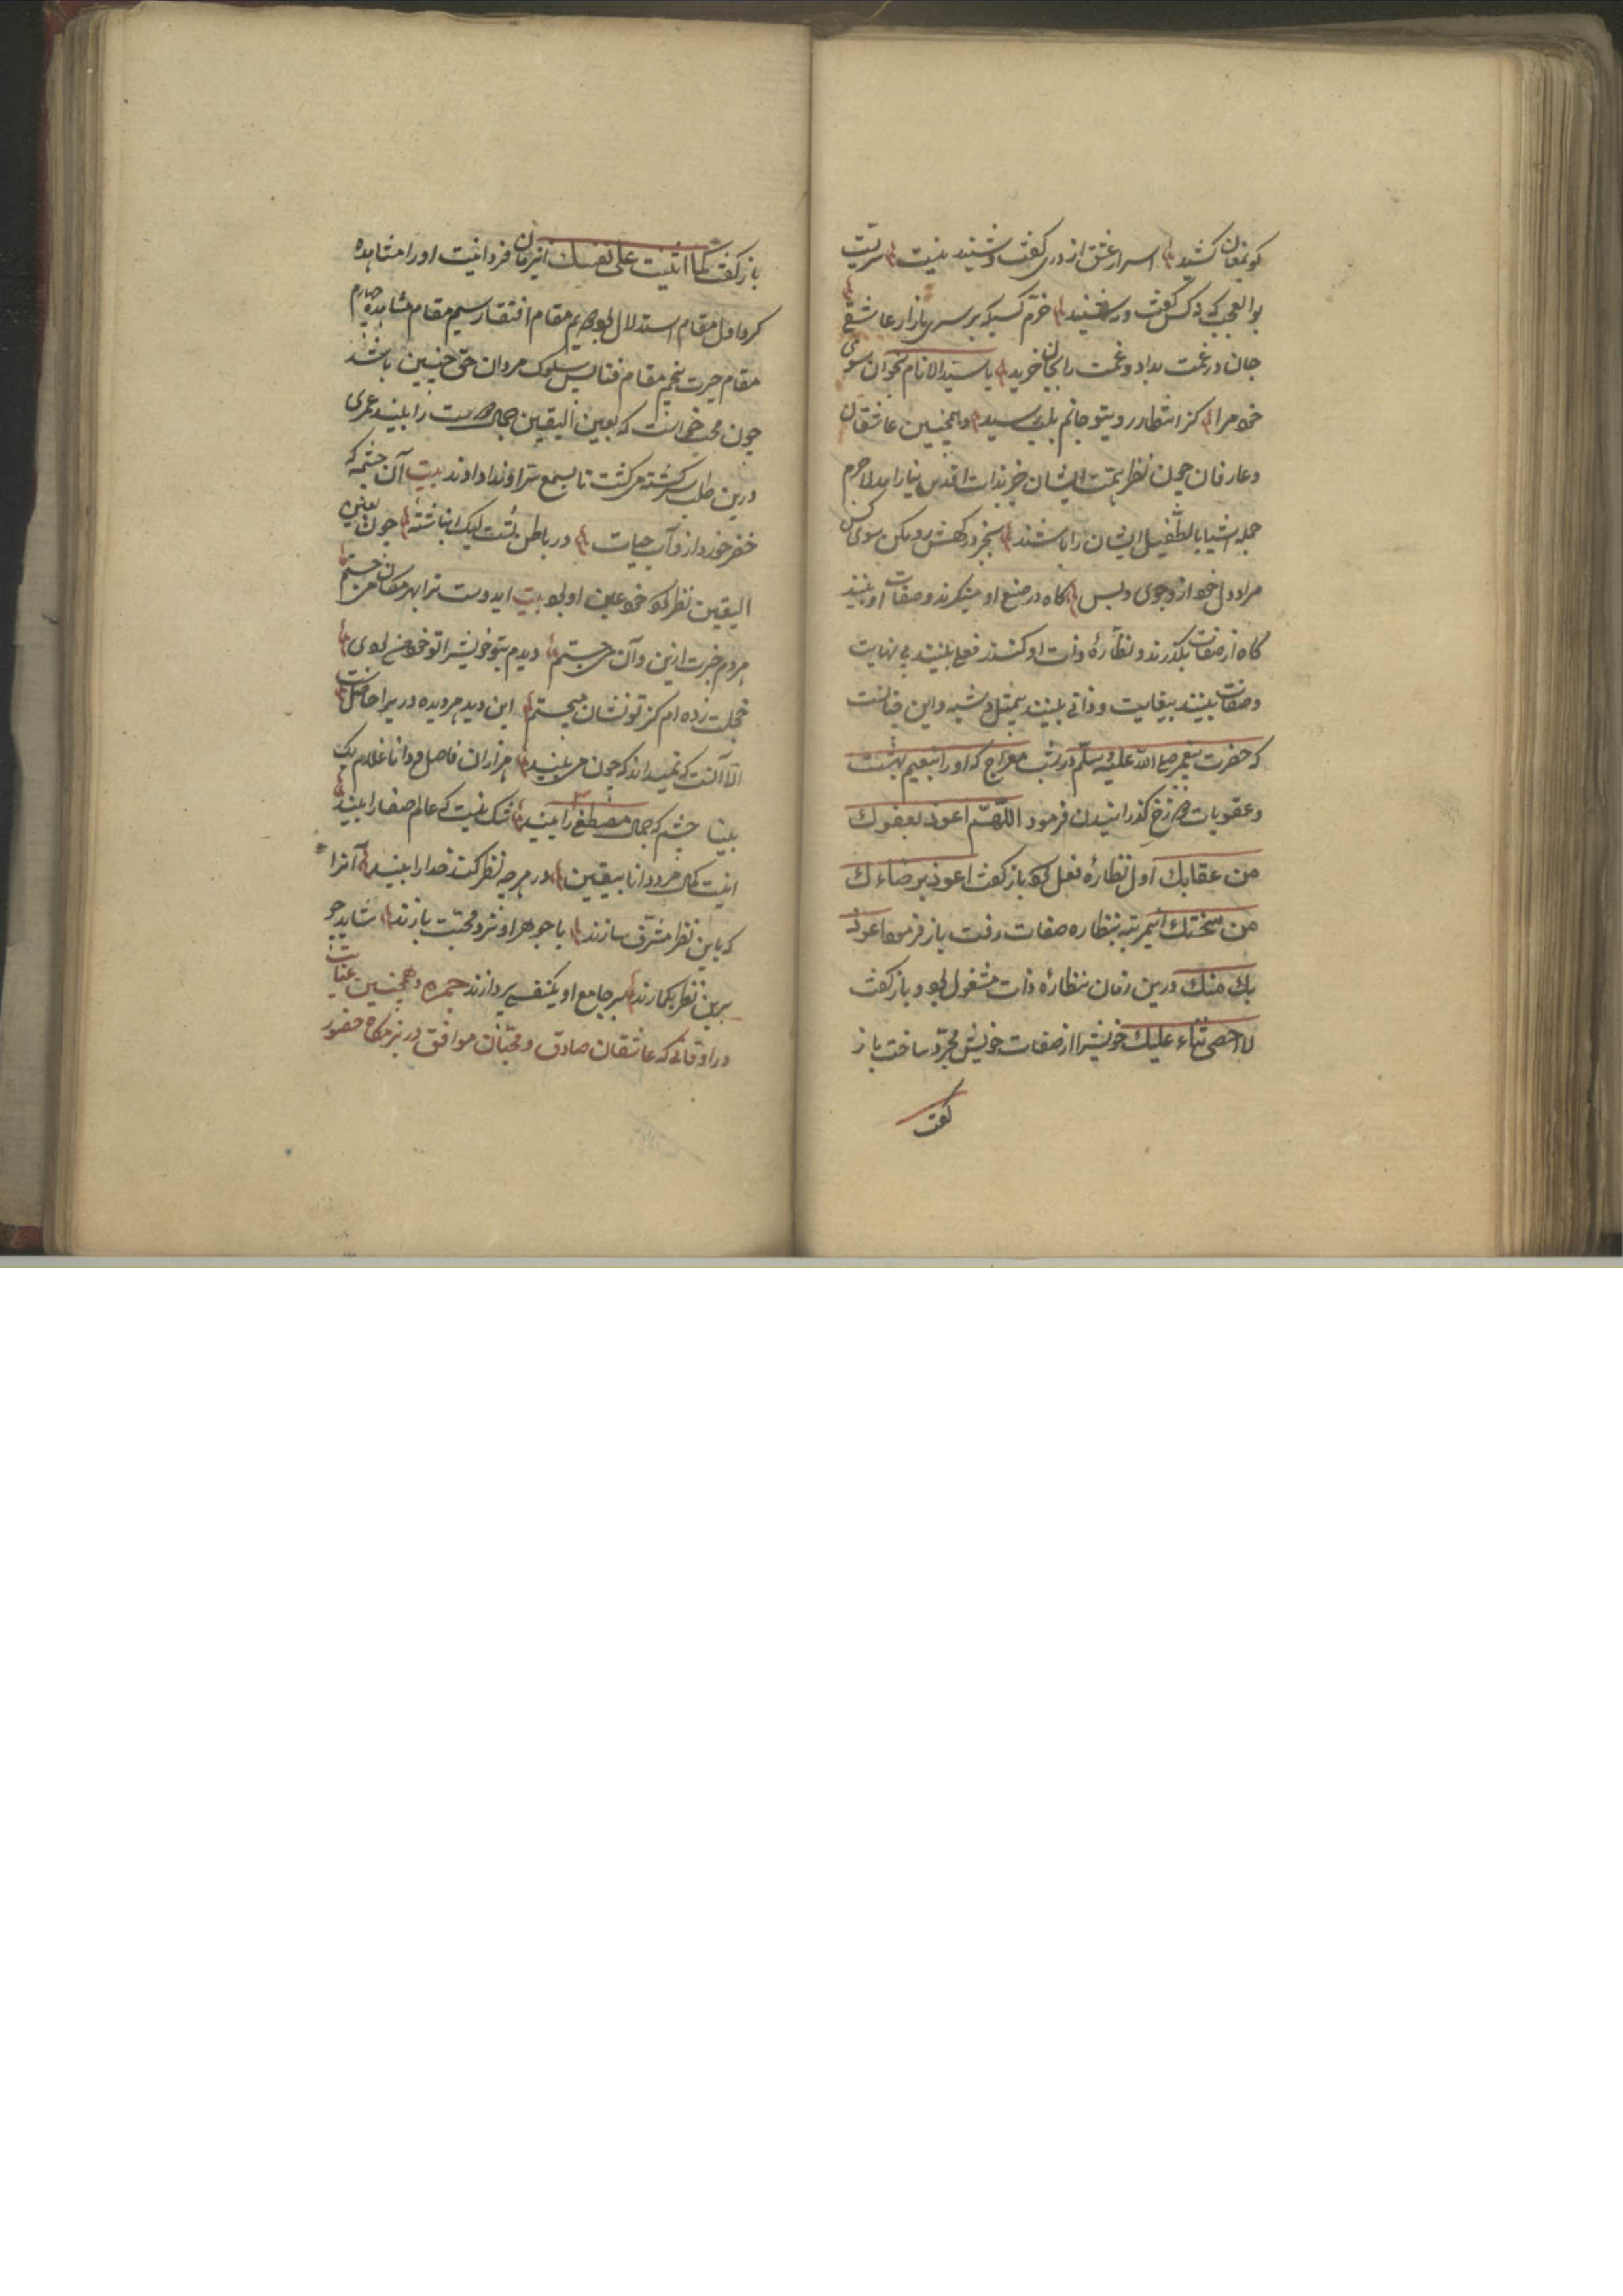 کو نغان کشد اسرار عشق از در گفت و شنید نیست سریست
بوالعجب که کس گفت و شنید خرم کسیکه بر سر بازار عاشقی
جان در غمت بداد و غمت را بجان خرید یا سید الانام بخوان سوی
خود مرا کز انتظار روی تو جانم بلب رسید و همچنین عاشقان
و عارفان چون نظر همت ایشان جز بذات اقدس نیارامد لاجرم
جمله اشیا بالطفیل ایشان را باشند رو مکن سوی کس
مراد دل خود ازو جوی و بس گاه در صنع او مینگرند و صفات او بینند
گاه از صفات بگذرند و نظارهٔ ذات او کنند فعلی بینند بی نهایت
و صفات بینند بیغایت و ذاتی بینند بیمثل و شبه و این چنانست
که حضرت پیغمبر صلی الله علیه وسلم در شب معراج که او را بنعیم بهشت
و عقوبات دوزخ گذرانیدن فرمود اللهم اعوذ بعفوك
من عقابك اول نظارهٔ فعل کرد باز گفت اعوذ برضاءك
من سخطك اینمرتبه بنظاره صفات رفت باز فرمود اعوذ
بك منك درین زمان بنظارهٔ ذات مشغول بود و باز گفت
لا احصی ثناء علیك خویش را از صفات خویش مجرد ساخت باز
گفت
باز گفت کما اثنیت علی نفسك اینزمان فردانیت او را مشاهده
کرد اول مقام استدلال بود دویم مقام افتقار سیم مقام مشاهده چهارم
مقام حیرت پنجم مقام فنا پس سلوک مردان حق چنین باشد
چون محب خواست که بعین الیقین جمال دوست را ببیند عمری
درین طلب سرگشته میگشت تا بسمع سر او ندا دادند بیت آن چشمه که
خضر خورد ازو آب حیات در باطن تست لیک انباشتهٔ چون بعین
الیقین نظر کرد خود عین او بود بیت ایدوست ترا بهر مکان می جستم
هر دم خبرت ازین و آن می جستم دیدم بتو خویش را تو خود من بودی
خجلت زده ام کز تو نشان میجستم این دید هر دیده در یرا حاصلست
الا آنست که نمیداند که چون می بیند هزاران فاضل و دانا غلام یک
بینا چشم که جمال مصطفی را بیند شک نیست که عالم صفا را بیند
اینست کمال مرد دانا بیقین در هر چه نظر کند خدا را بیند آنرا
که باین نظر مشرف سازند با جوهر او نرد محبت بازند شاید چو
برین نظر بگمارند بر جامع او بکنفسی پردازند و همچنین
در اوقاتی که عاشقان صادق و محبان موافق در بزمگاه حضور